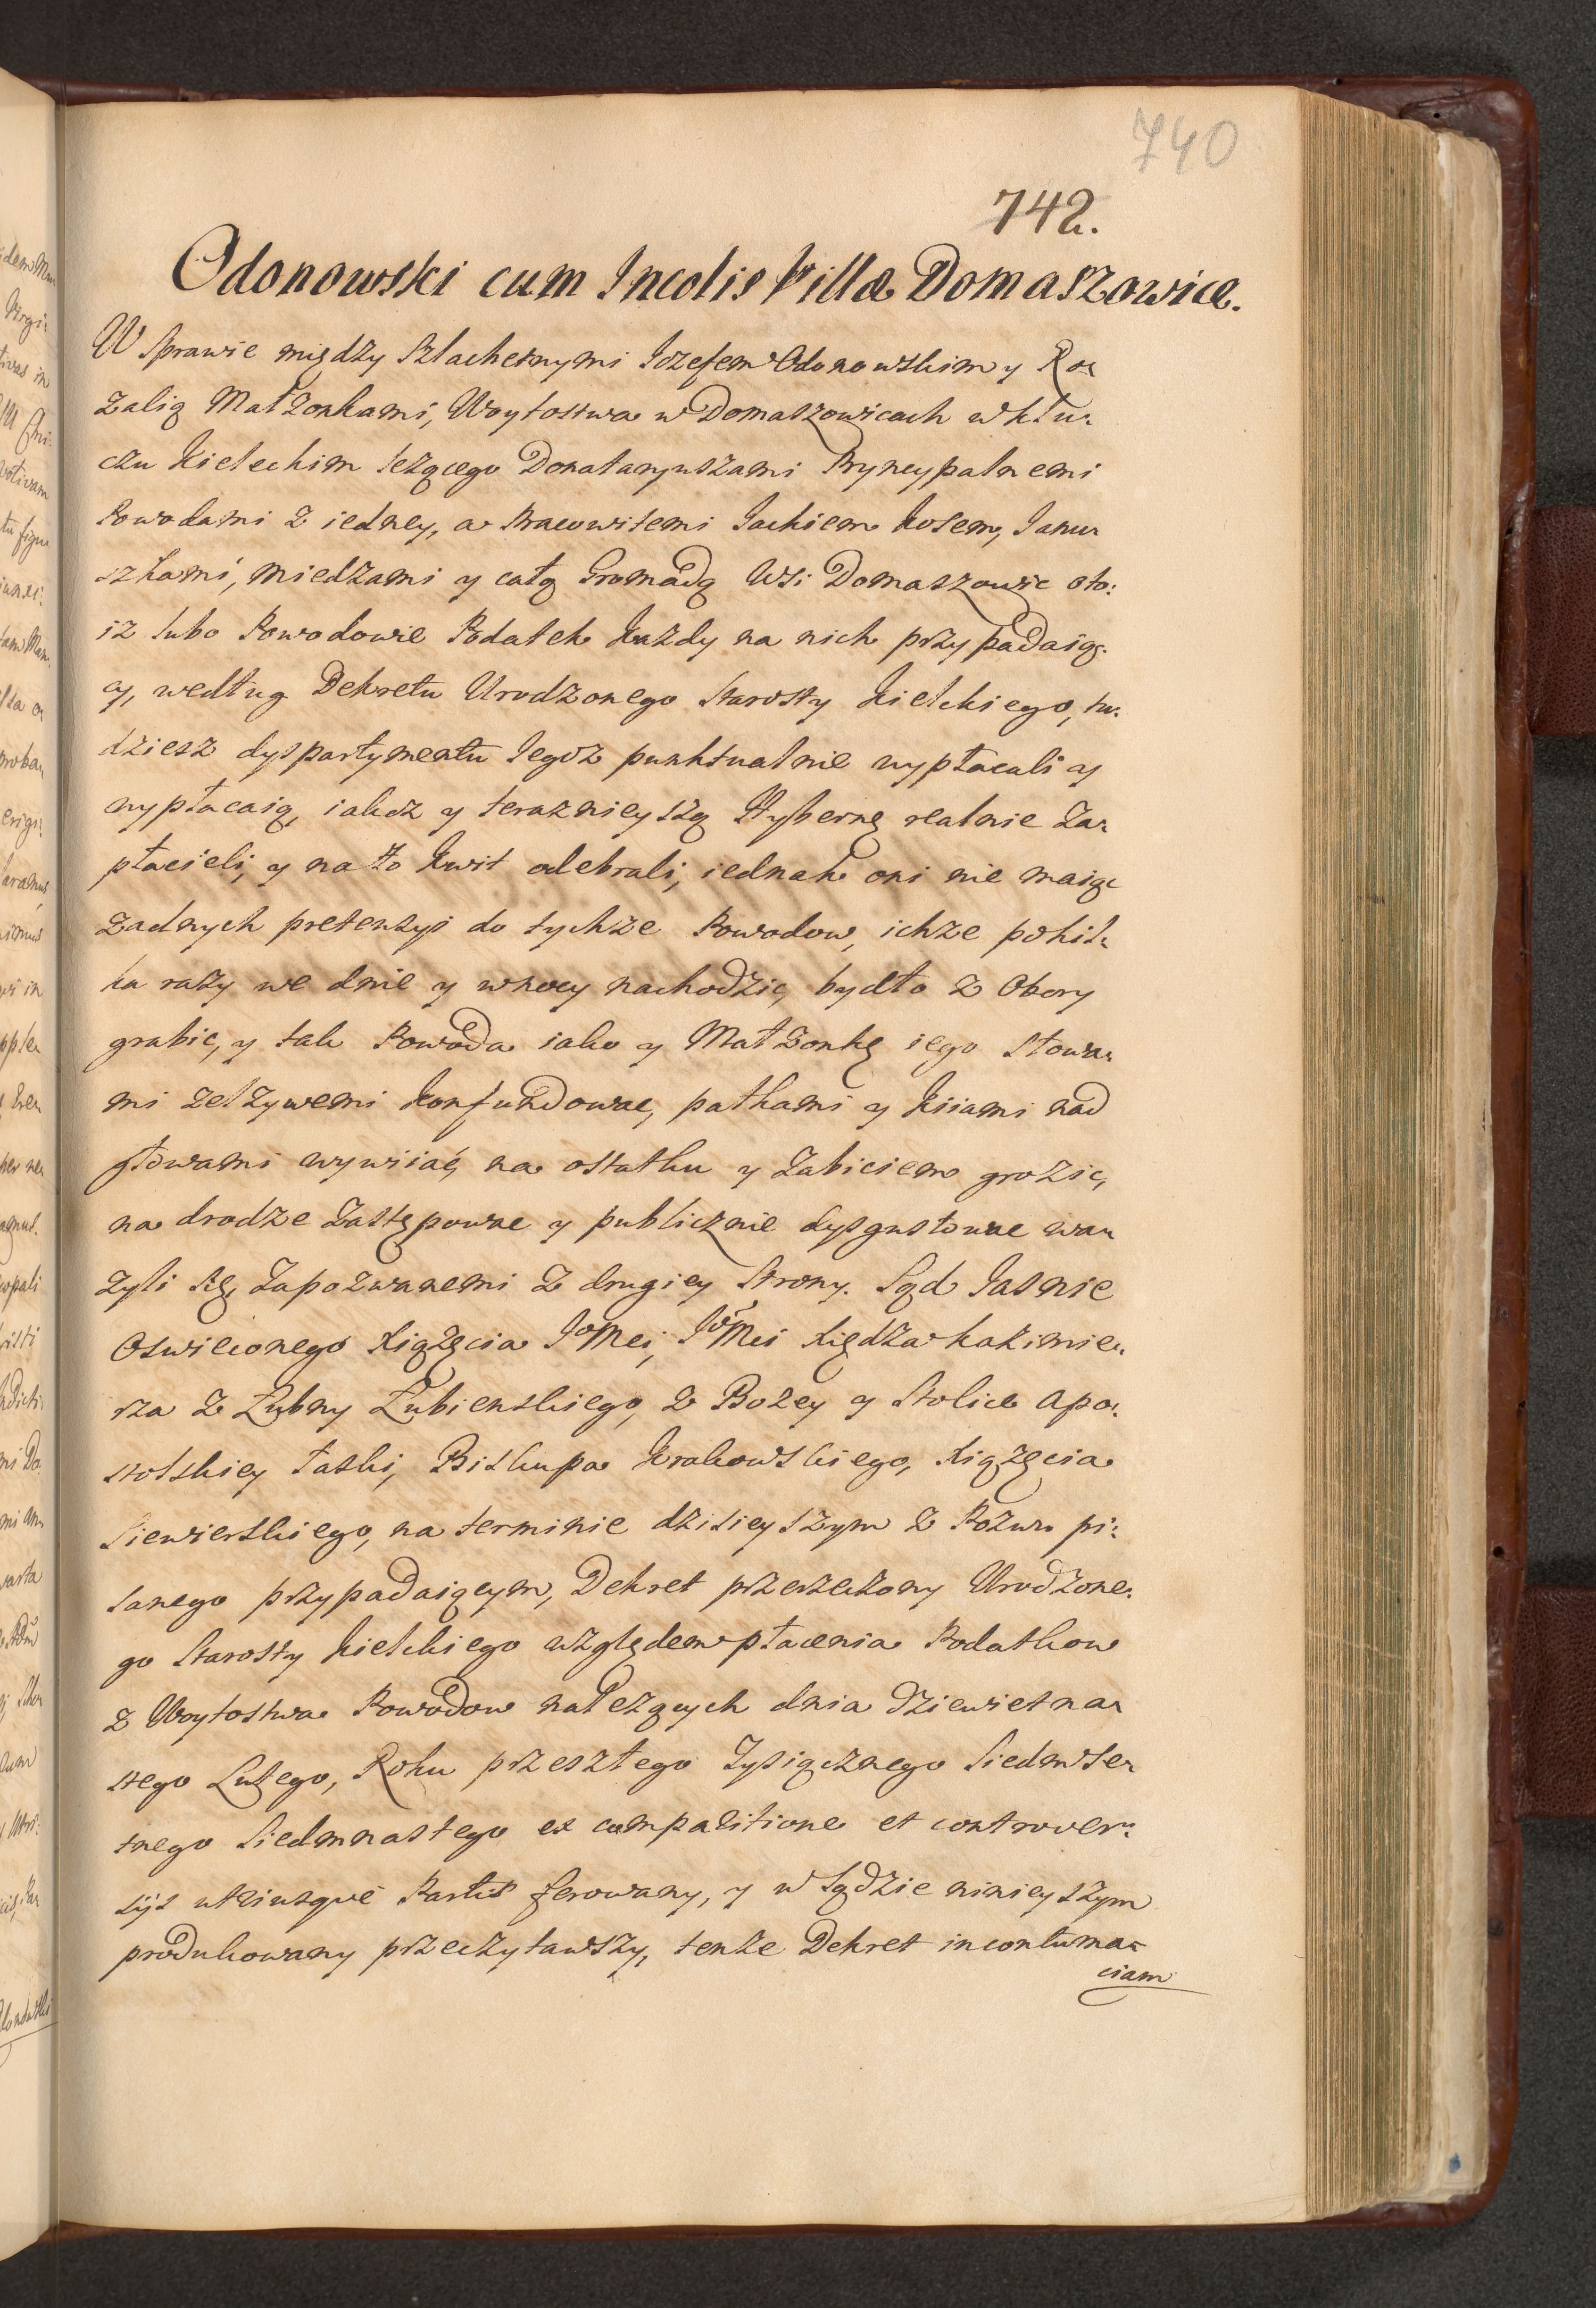 740
742.
Odonowski cum Incolis Villæ Domaszowice.
W Sprawie między Szlachetnymi Iozefem Odonowskim y Ro:
zalią Małzonkami, Woytostwa w Domaszowicach w klu:
czu Kieleckim lezącego Donataryuszami Pryncypalnemi
Powodami z iedney, a Pracowitemi Iackiem Kosem, Ianu:
szkami, Miedzami y całą Gromadą Wsi Domaszowic oto:
iz lubo Powodowie Podatek Kazdy na nich przypadaią:
cy, według Dekretu Urodzonego Starosty Kielckiego, tu:
dziesz dyspartymentu tegoz punktualnie wypłacali y
wypłacaią, iakoz y teraznieyszą Hybernę realnie Za:
płacieli, y na to Kwit odebrali, iednak oni nie maiąc
zadnych pretensyi do tychze Powodow, ichze po kil:
ka razy we dnie y w nocy nachodzic, bydło z Obory
grabic, y tak Powoda iako y Małzonkę iego słowa:
mi zelzywemi Konfundowac, pałkami y Kiiami nad
głowami wywiiać, na ostatku y Zabiciem grozic,
na drodze Zastępowac y publicznie dysgustowac wa:
zyli się, Zapozwanemi z drugiey Strony. Sąd Iasnie
Oswieconego Xiązęcia IoMci, IoMci Xiędza Kazimie:
rza z Łubny Łubienskiego, z Bozey y Stolice Apo:
stolskiey łaski, Biskupa Krakowskiego, Xiązęcia
Siewierskiego, na terminie dzisieyszym z Pozwu pi:
sanego przypadaiącym, Dekret przerzeczony Urodzone:
go Starosty Kielckiego względem płacenia Podatkow
z Woytostwa Powodow nalezących dnia dziewietna:
stego Lutego, Roku przeszłego Tysiącznego Siedmse:
tnego Siedmnastego ex comparitione et controver:
sijs utriusque Partis ferowany, y w Sądzie ninieyszym
produkowany przeczytawszy, tenze Dekret in contuma:
ciam